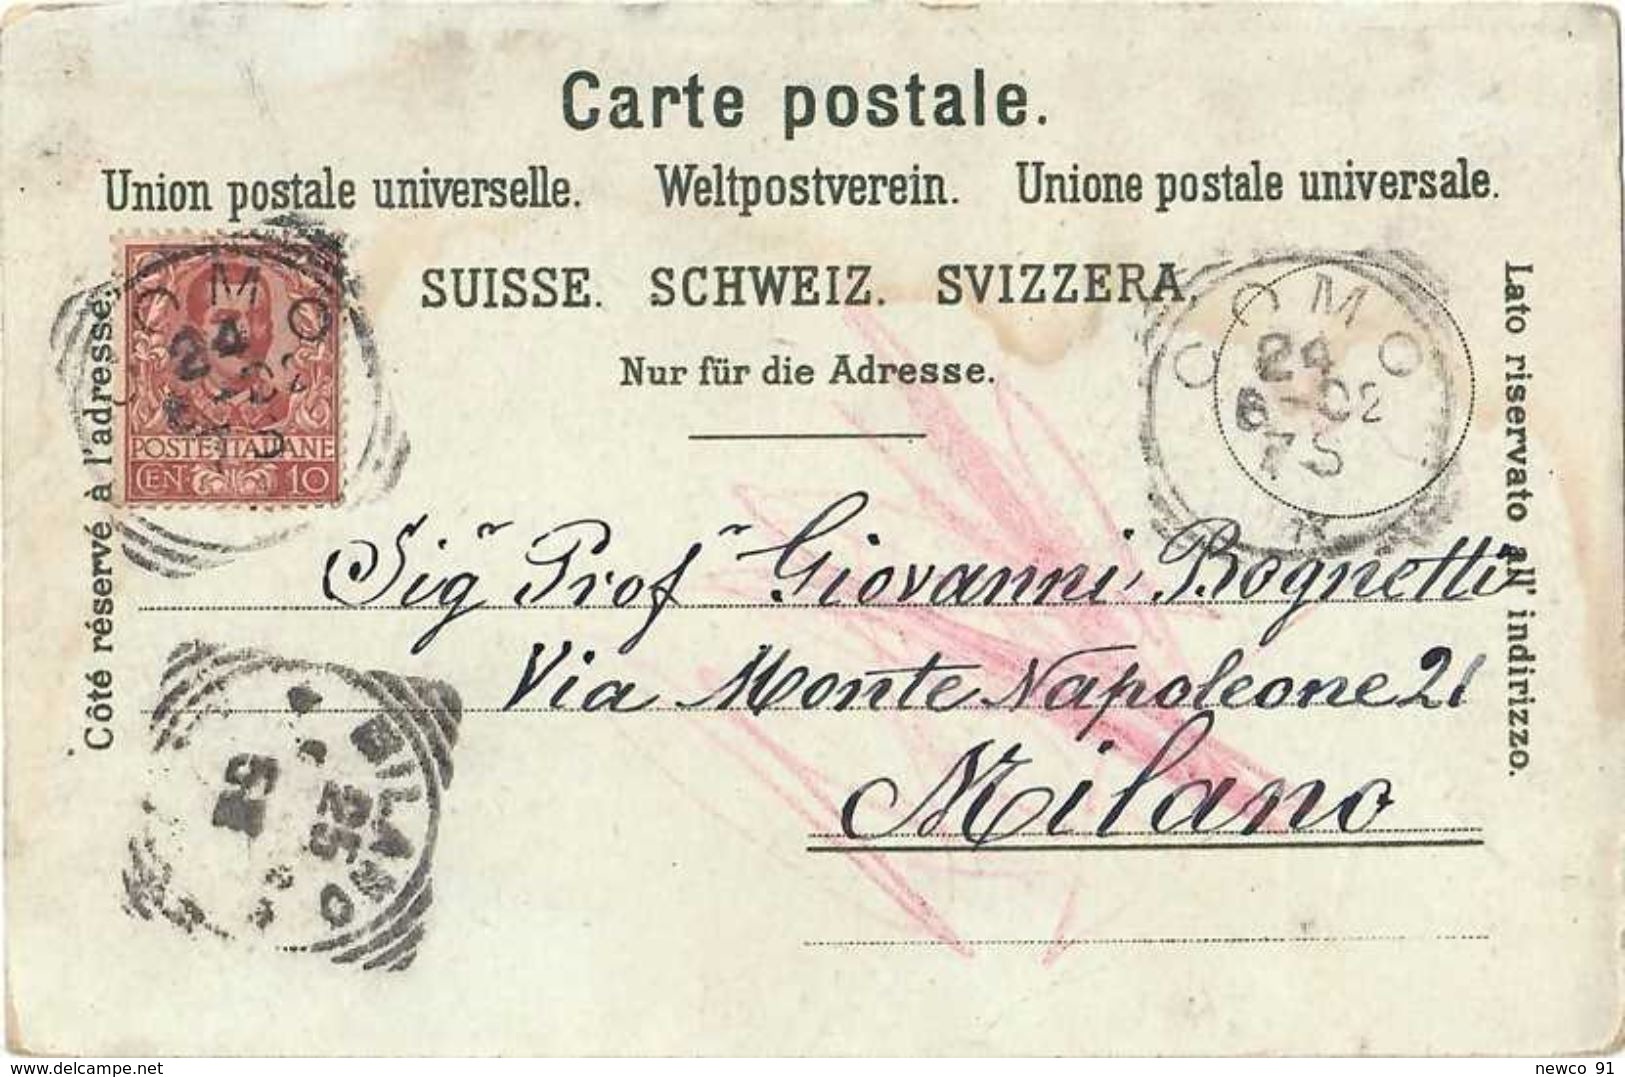 Carte postale.
Union postale universelle. Weltpostverein. Unione postale universale.
SUISSE. SCHWEIZ. SVIZZERA.
Nur für die Adresse.
Côté réservé à l'adresse.
Lato riservato all' indirizzo.
POSTE·ITALIANE
CEN 10
COMO
24
6-02
7S
COMO
24
6-02
7S
Sigr Profr Giovanni Rognetti
Via Monte Napoleone 21
Milano
MILANO
25
5
newco 91
delcampe.net